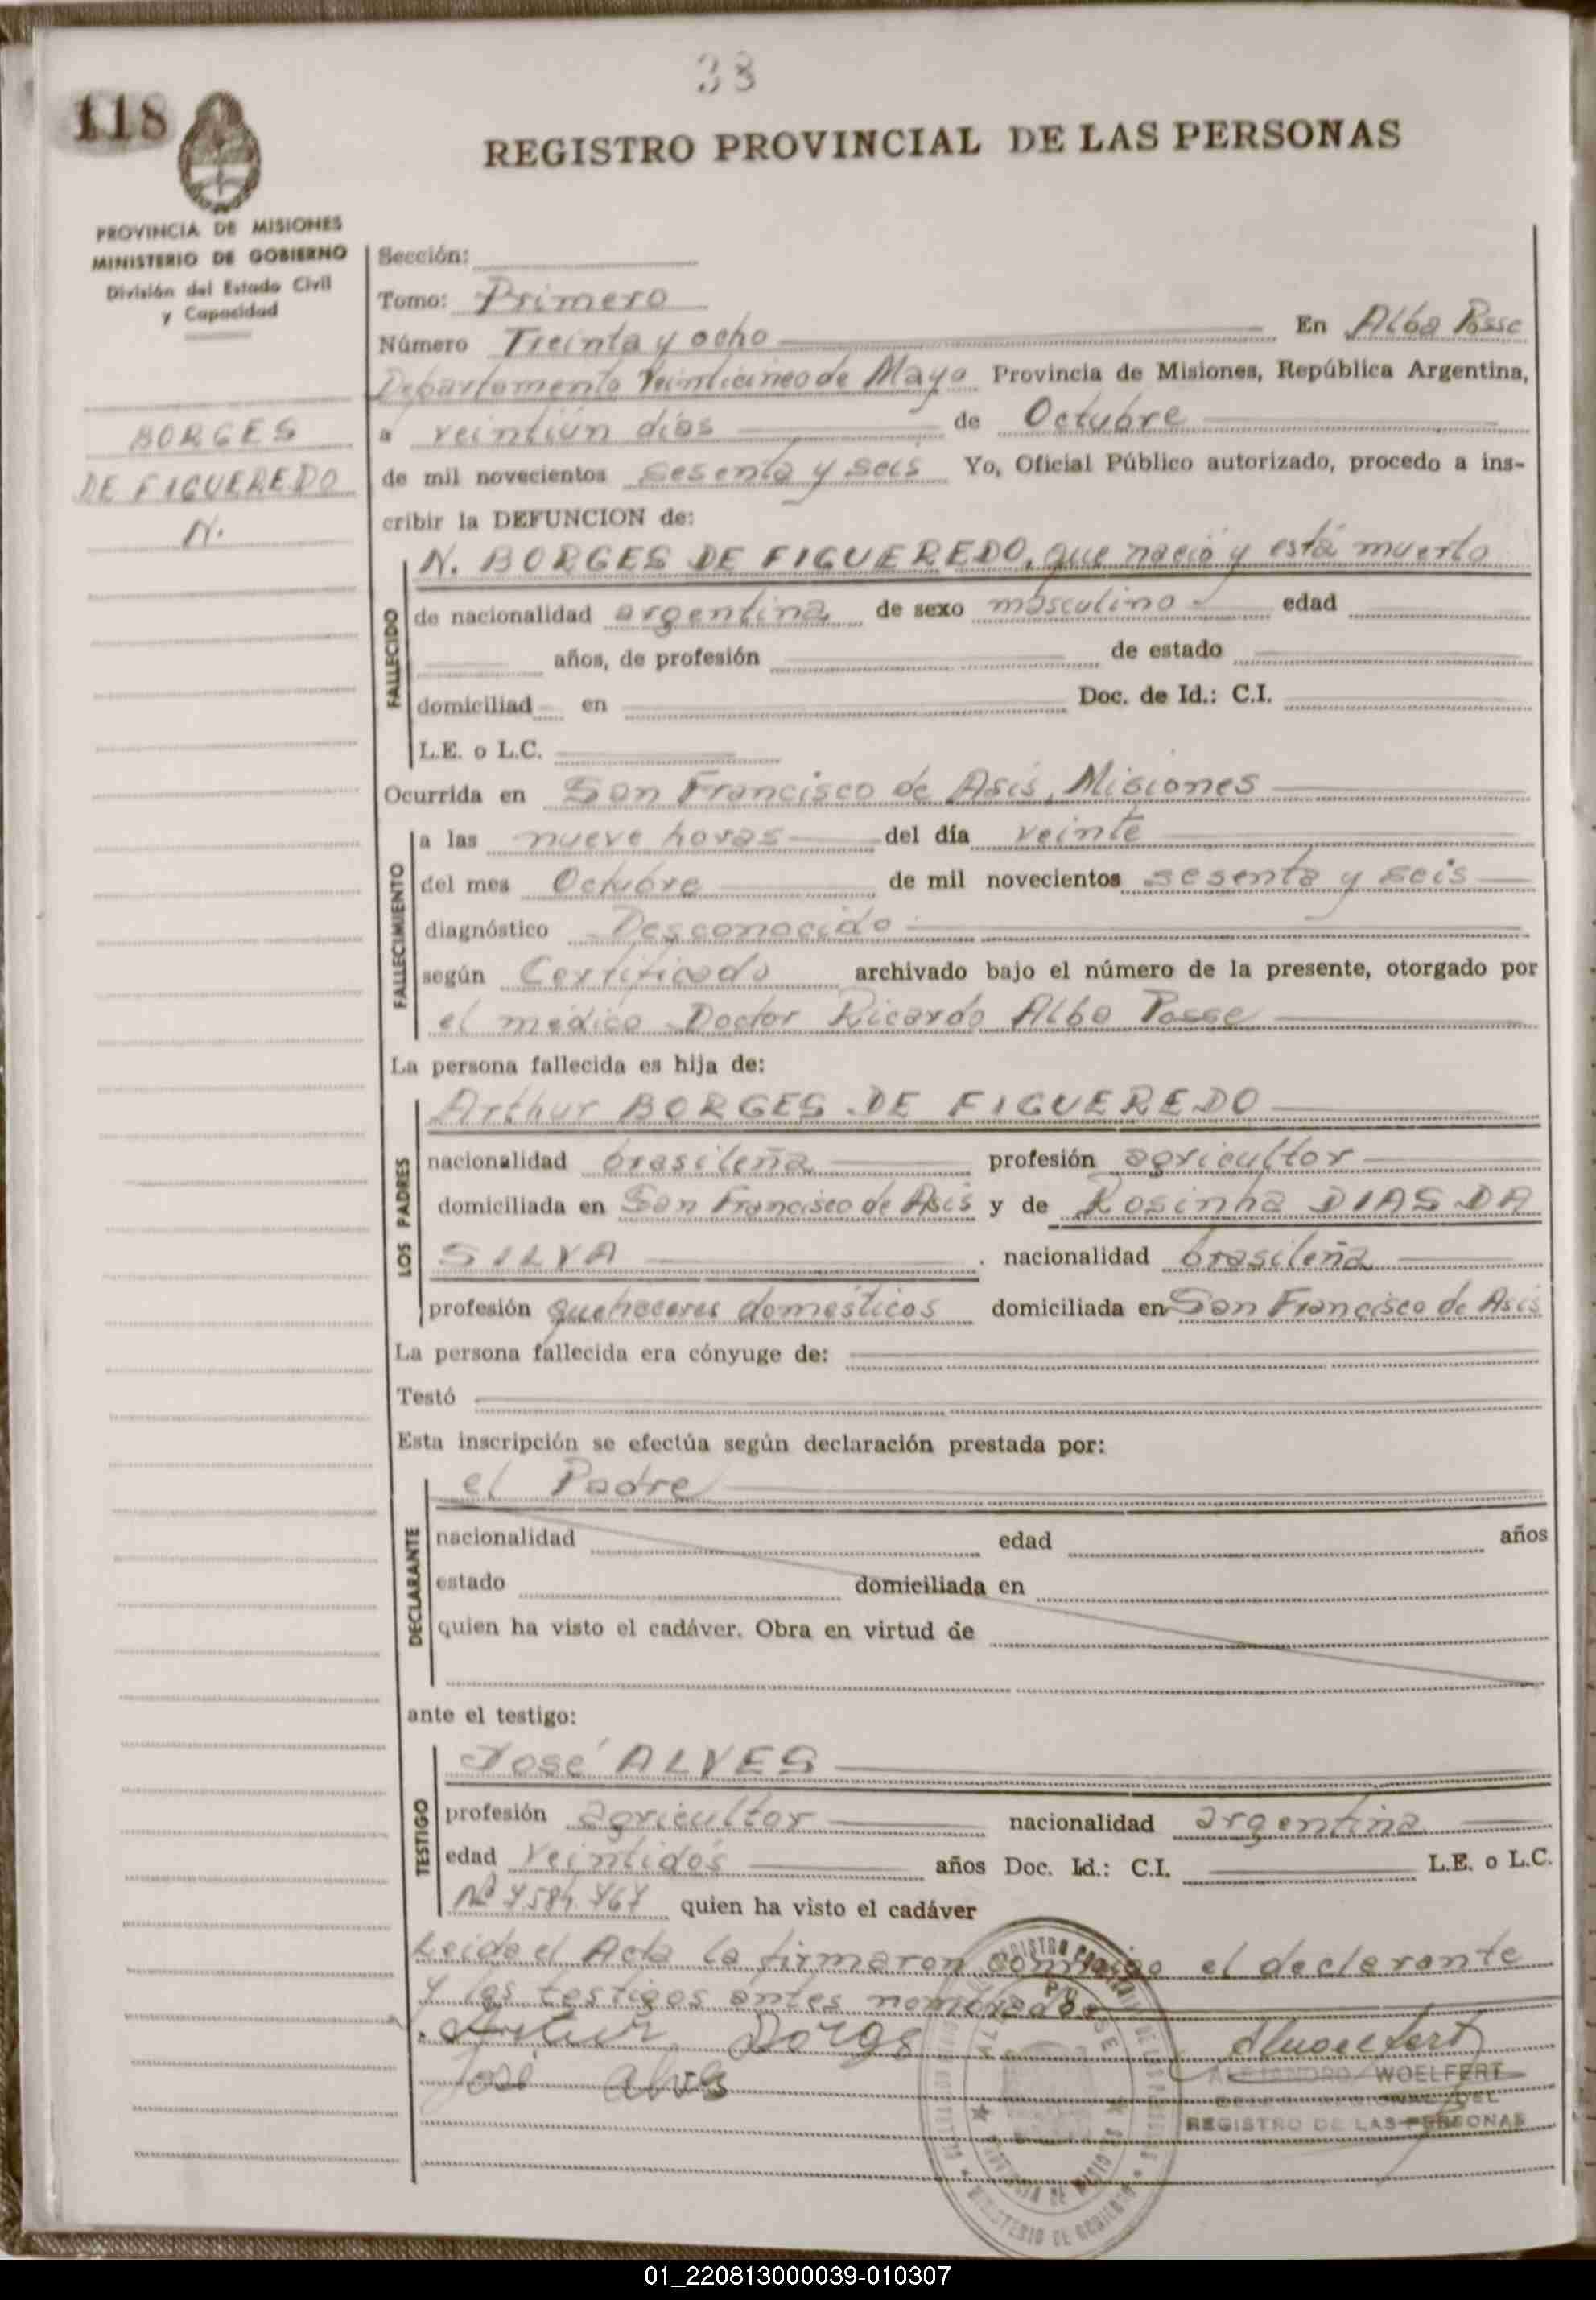 38
118
REGISTRO PROVINCIAL DE LAS PERSONAS
PROVINCIA DE MISIONES
MINISTERIO DE GOBIERNO
División del Estado Civil
y Capacidad
BORGES
DE FIGUEREDO
N.
Sección:
Tomo: Primero
Número Treinta y ocho En Alba Posse
Departamento Veinticinco de Mayo Provincia de Misiones, República Argentina,
a veintiún días de Octubre
de mil novecientos sesenta y seis Yo, Oficial Público autorizado, procedo a ins-
cribir la DEFUNCION de:
FALLECIDO
N. BORGES DE FIGUEREDO, que nació y está muerto
de nacionalidad argentina de sexo masculino edad
años, de profesión de estado
domiciliad en Doc. de Id.: C.I.
L.E. o L.C.
Ocurrida en San Francisco de Asís, Misiones
FALLECIMIENTO
a las nueve horas del día veinte
del mes Octubre de mil novecientos sesenta y seis
diagnóstico Desconocido
según Certificado archivado bajo el número de la presente, otorgado por
el médico Doctor Ricardo Alba Posse
La persona fallecida es hija de:
LOS PADRES
Arthur BORGES DE FIGUEREDO
nacionalidad brasileña profesión agricultor
domiciliada en San Francisco de Asís y de Rosinha DIAS DA
SILVA . nacionalidad brasileña
profesión quehaceres domésticos domiciliada en San Francisco de Asís
La persona fallecida era cónyuge de:
Testó
Esta inscripción se efectúa según declaración prestada por:
DECLARANTE
el Padre
nacionalidad edad años
estado domiciliada en
quien ha visto el cadáver. Obra en virtud de
ante el testigo:
TESTIGO
José ALVES
profesión agricultor nacionalidad argentina
edad Veintidós años Doc. Id.: C.I. L.E. o L.C.
Nº 7.584.767 quien ha visto el cadáver
Leída el Acta la firmaron conmigo el declarante
y los testigos antes nombrados
Artur Borges
José Alves
ALEJANDRO WOELFERT
REGISTRO DE LAS PERSONAS
01_220813000039-010307